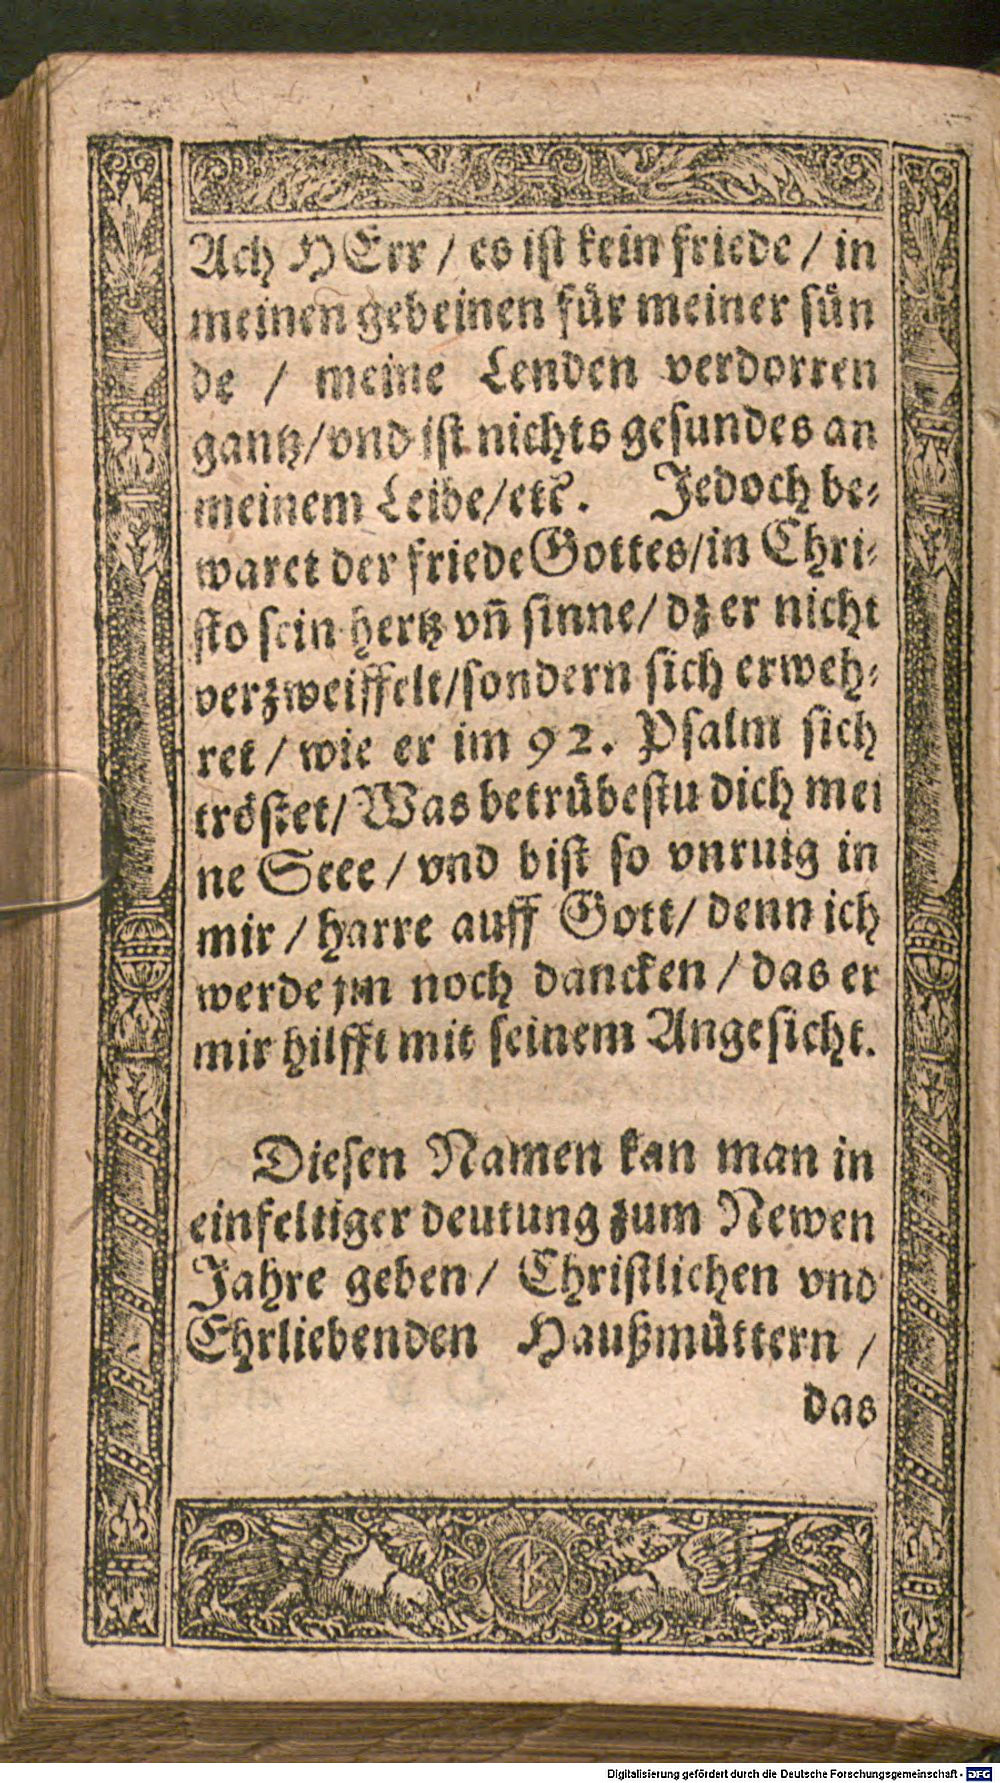 Ach HErr / es ist kein friede / in
meinen gebeinen für meiner sün
de / meine Lenden verdorren
gantz/vnd ist nichts gesundes an
meinem Leibe/etc. Jedoch be⸗
waret der friede Gottes/in Chri⸗
sto sein hertz vñ sinne/ dz er nicht
verzweiffelt/sondern sich erweh⸗
ret / wie er im 92. Psalm sich
tröstet/Was betrübestu dich mei
ne Seee / vnd bist so vnruig in
mir / harre auff Gott/ denn ich
werde jm noch dancken / das er
mir hilfft mit seinem Angesicht.
Diesen Namen kan man in
einfeltiger deutung zum Newen
Jahre geben/ Christlichen vnd
Ehrliebenden Haußmüttern /
das
Digitalisierung gefördert durch die Deutsche Forschungsgemeinschaft - DFG